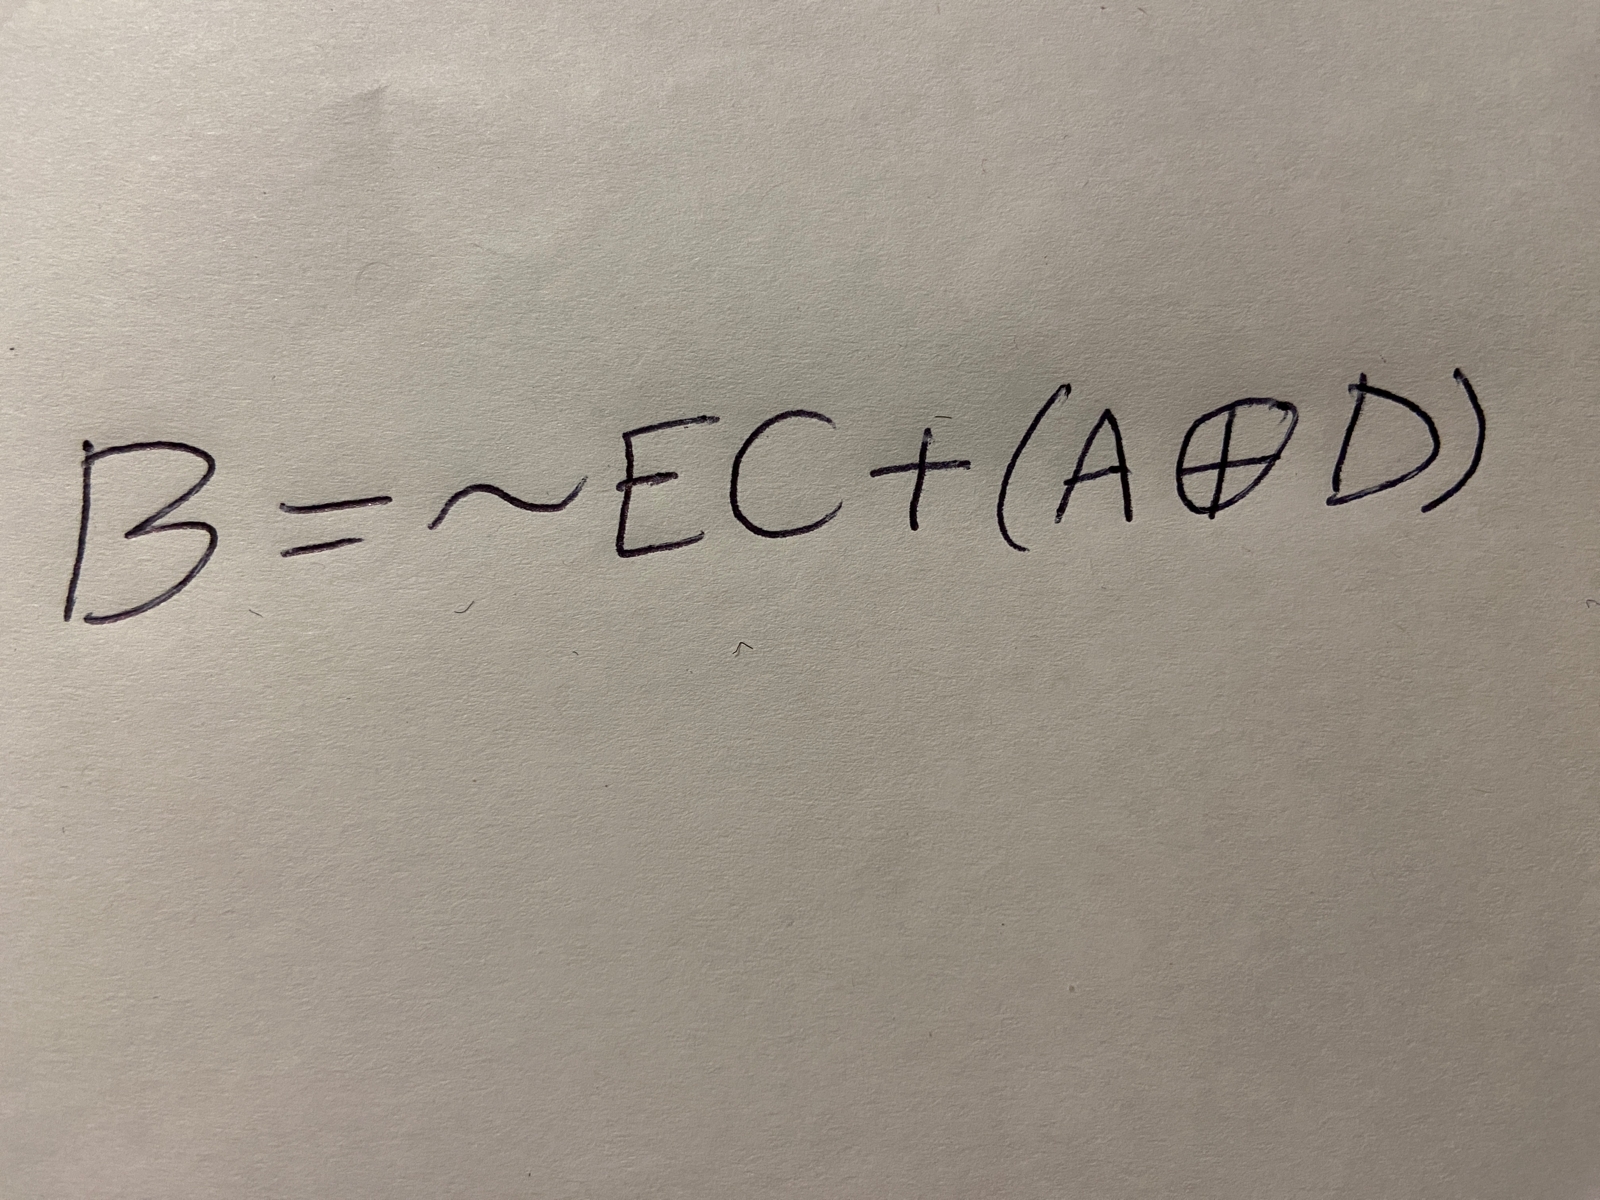 B = ~EC + (A ⊕ D)